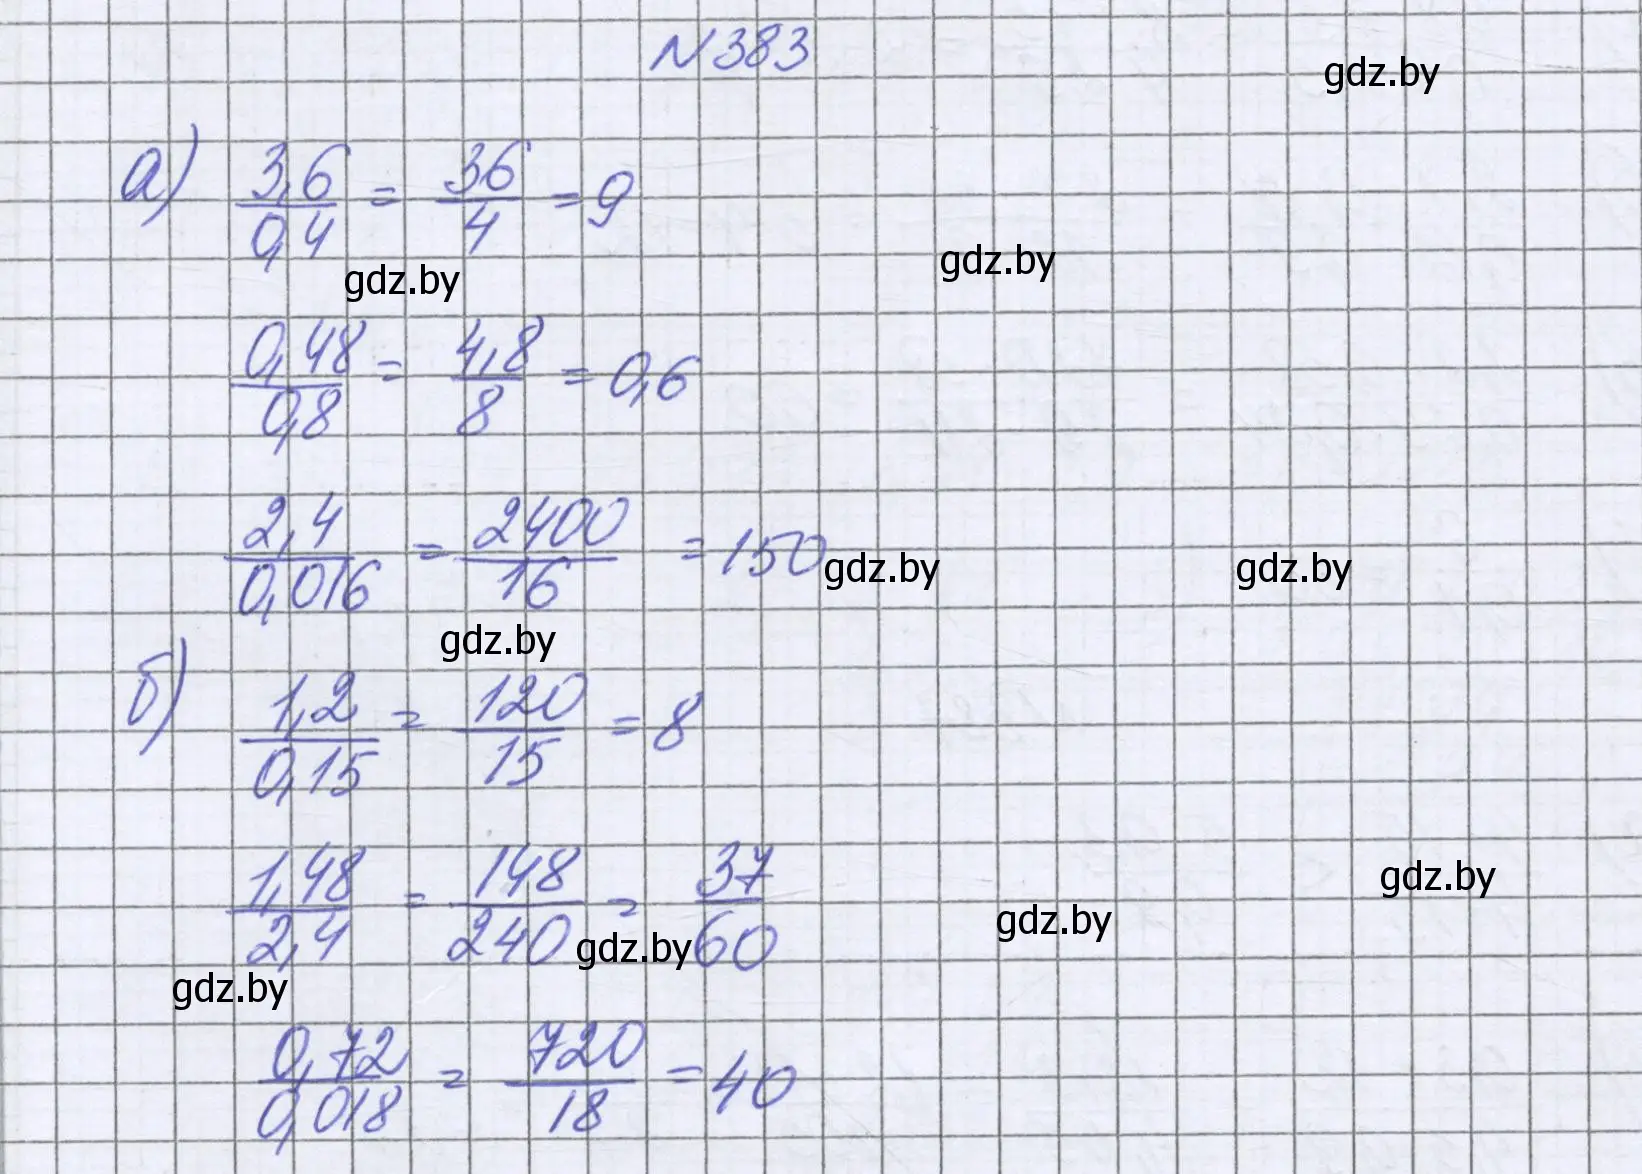 N 383
gdz.by
а) 3,6/0,4 = 36/4 = 9
gdz.by
gdz.by
0,48/0,8 = 4,8/8 = 0,6
2,4/0,016 = 2400/16 = 150
gdz.by
gdz.by
gdz.by
б) 1,2/0,15 = 120/15 = 8
1,48/2,4 = 148/240 = 37/60
gdz.by
gdz.by
gdz.by
gdz.by
0,72/0,018 = 720/18 = 40